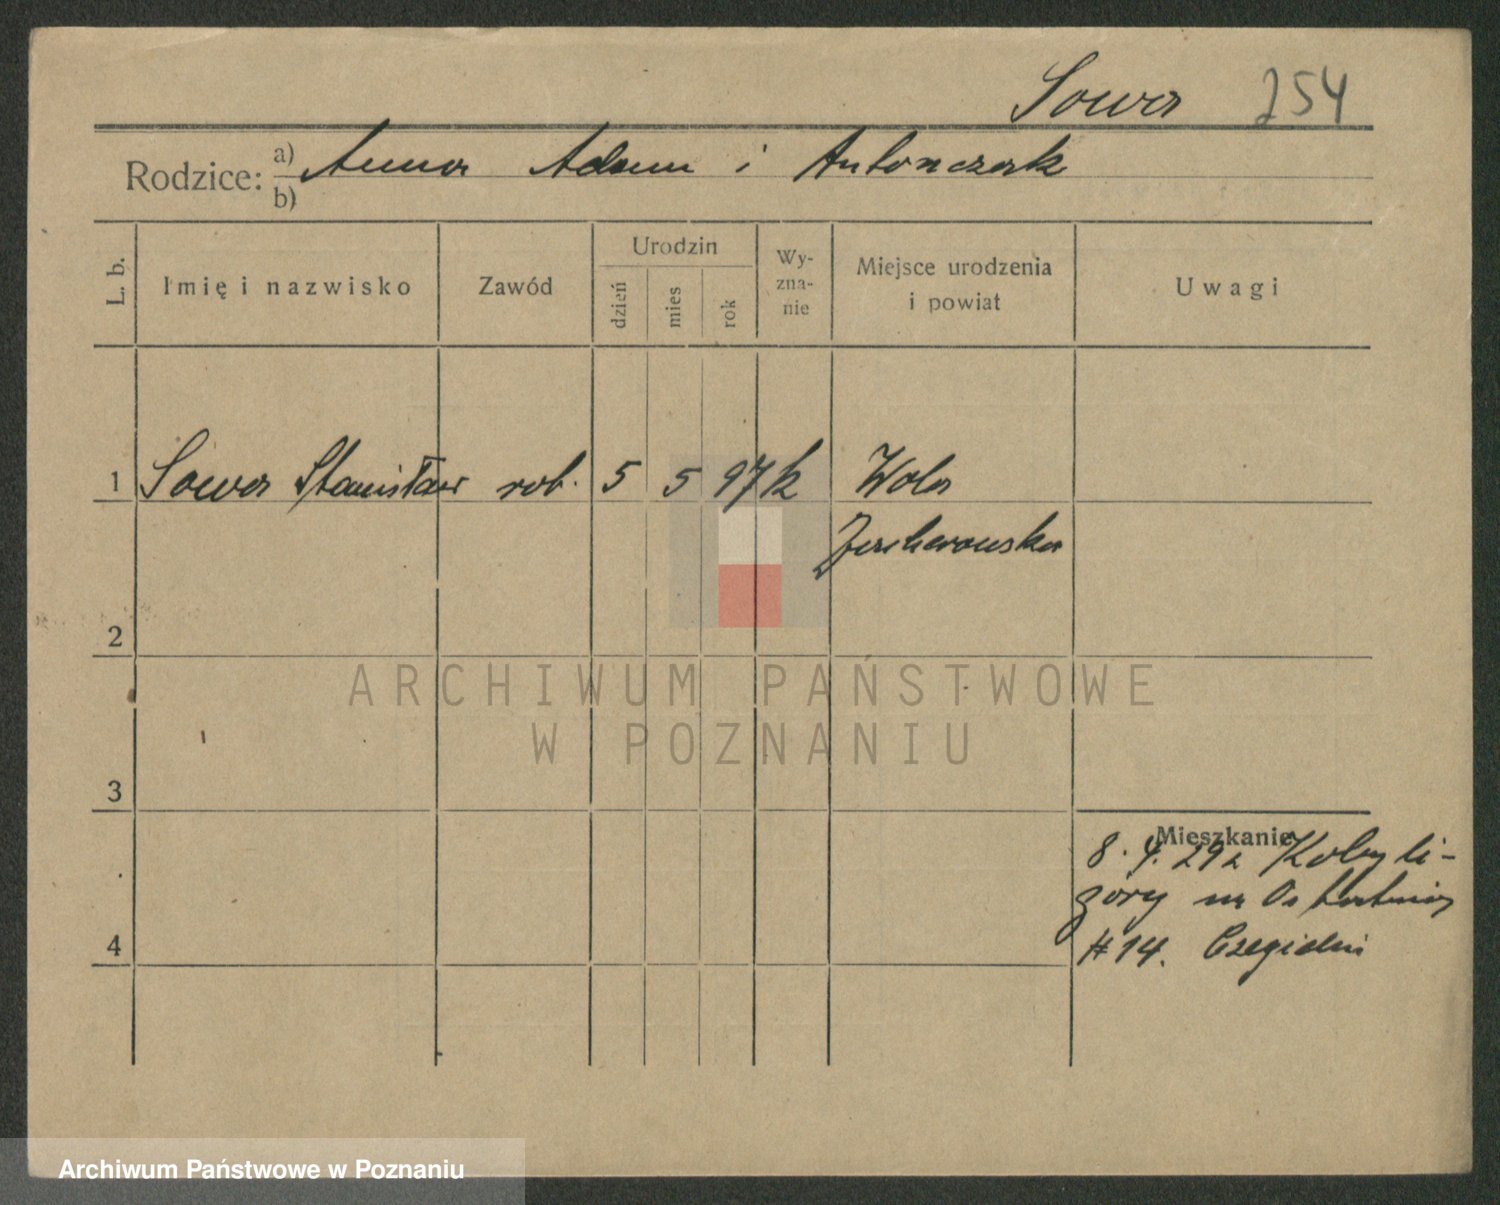 Sowa 254
Rodzice: a) Anna Adam i Antończak
b)
L. b. Imię i nazwisko Zawód Urodzin dzień mies rok Wy-zna-nie Miejsce urodzenia i powiat Uwagi
1 Sowa Stanisław rob. 5 5 97 k Wola
2
3
Mieszkanie
8. 4. 29 z Kobyli-
góry
4 # 14.
ARCHIWUM PAŃSTWOWE
W POZNANIU
Archiwum Państwowe w Poznaniu